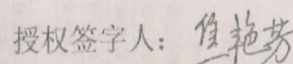 授权签字人：焦艳芳